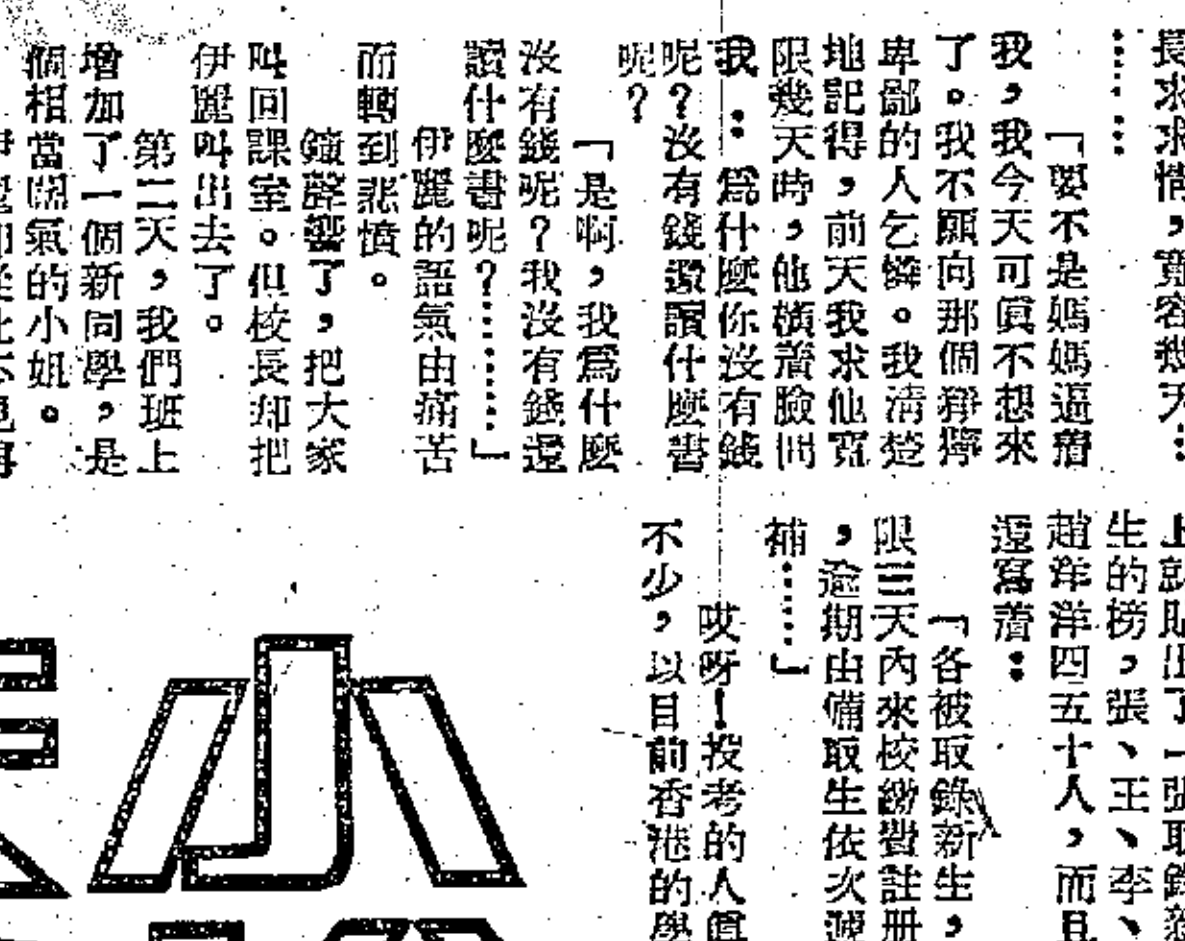 長求求情，寬容幾天：
……
「要不是媽媽逼着
我，我今天可真不想來
了。我不願向那個猙獰
卑鄙的人乞憐。我清楚
地記得，前天我求他寬
限幾天時，他橫着臉問
我：爲什麽你沒有錢
呢？沒有錢還讀什麽書
呢？
「是啊，我爲什麽
沒有錢呢？我沒有錢還
讀什麽書呢？……」
伊麗的語氣由痛苦
而轉到悲憤。
鐘聲響了，把大家
叫回課室。但校長却把
伊麗叫出去了。
第二天，我們班上
增加了一個新同學，是
個相當闊氣的小姐。
上就貼出了一張取錄
生的榜，張、王、李、
趙洋洋洋四五十人，而且
還寫着：
「各被取錄新生，
限三天內來校繳費註册
，逾期由備取生依次遞
補……」
哎呀！投考的人眞
不少，以目前香港的學
小